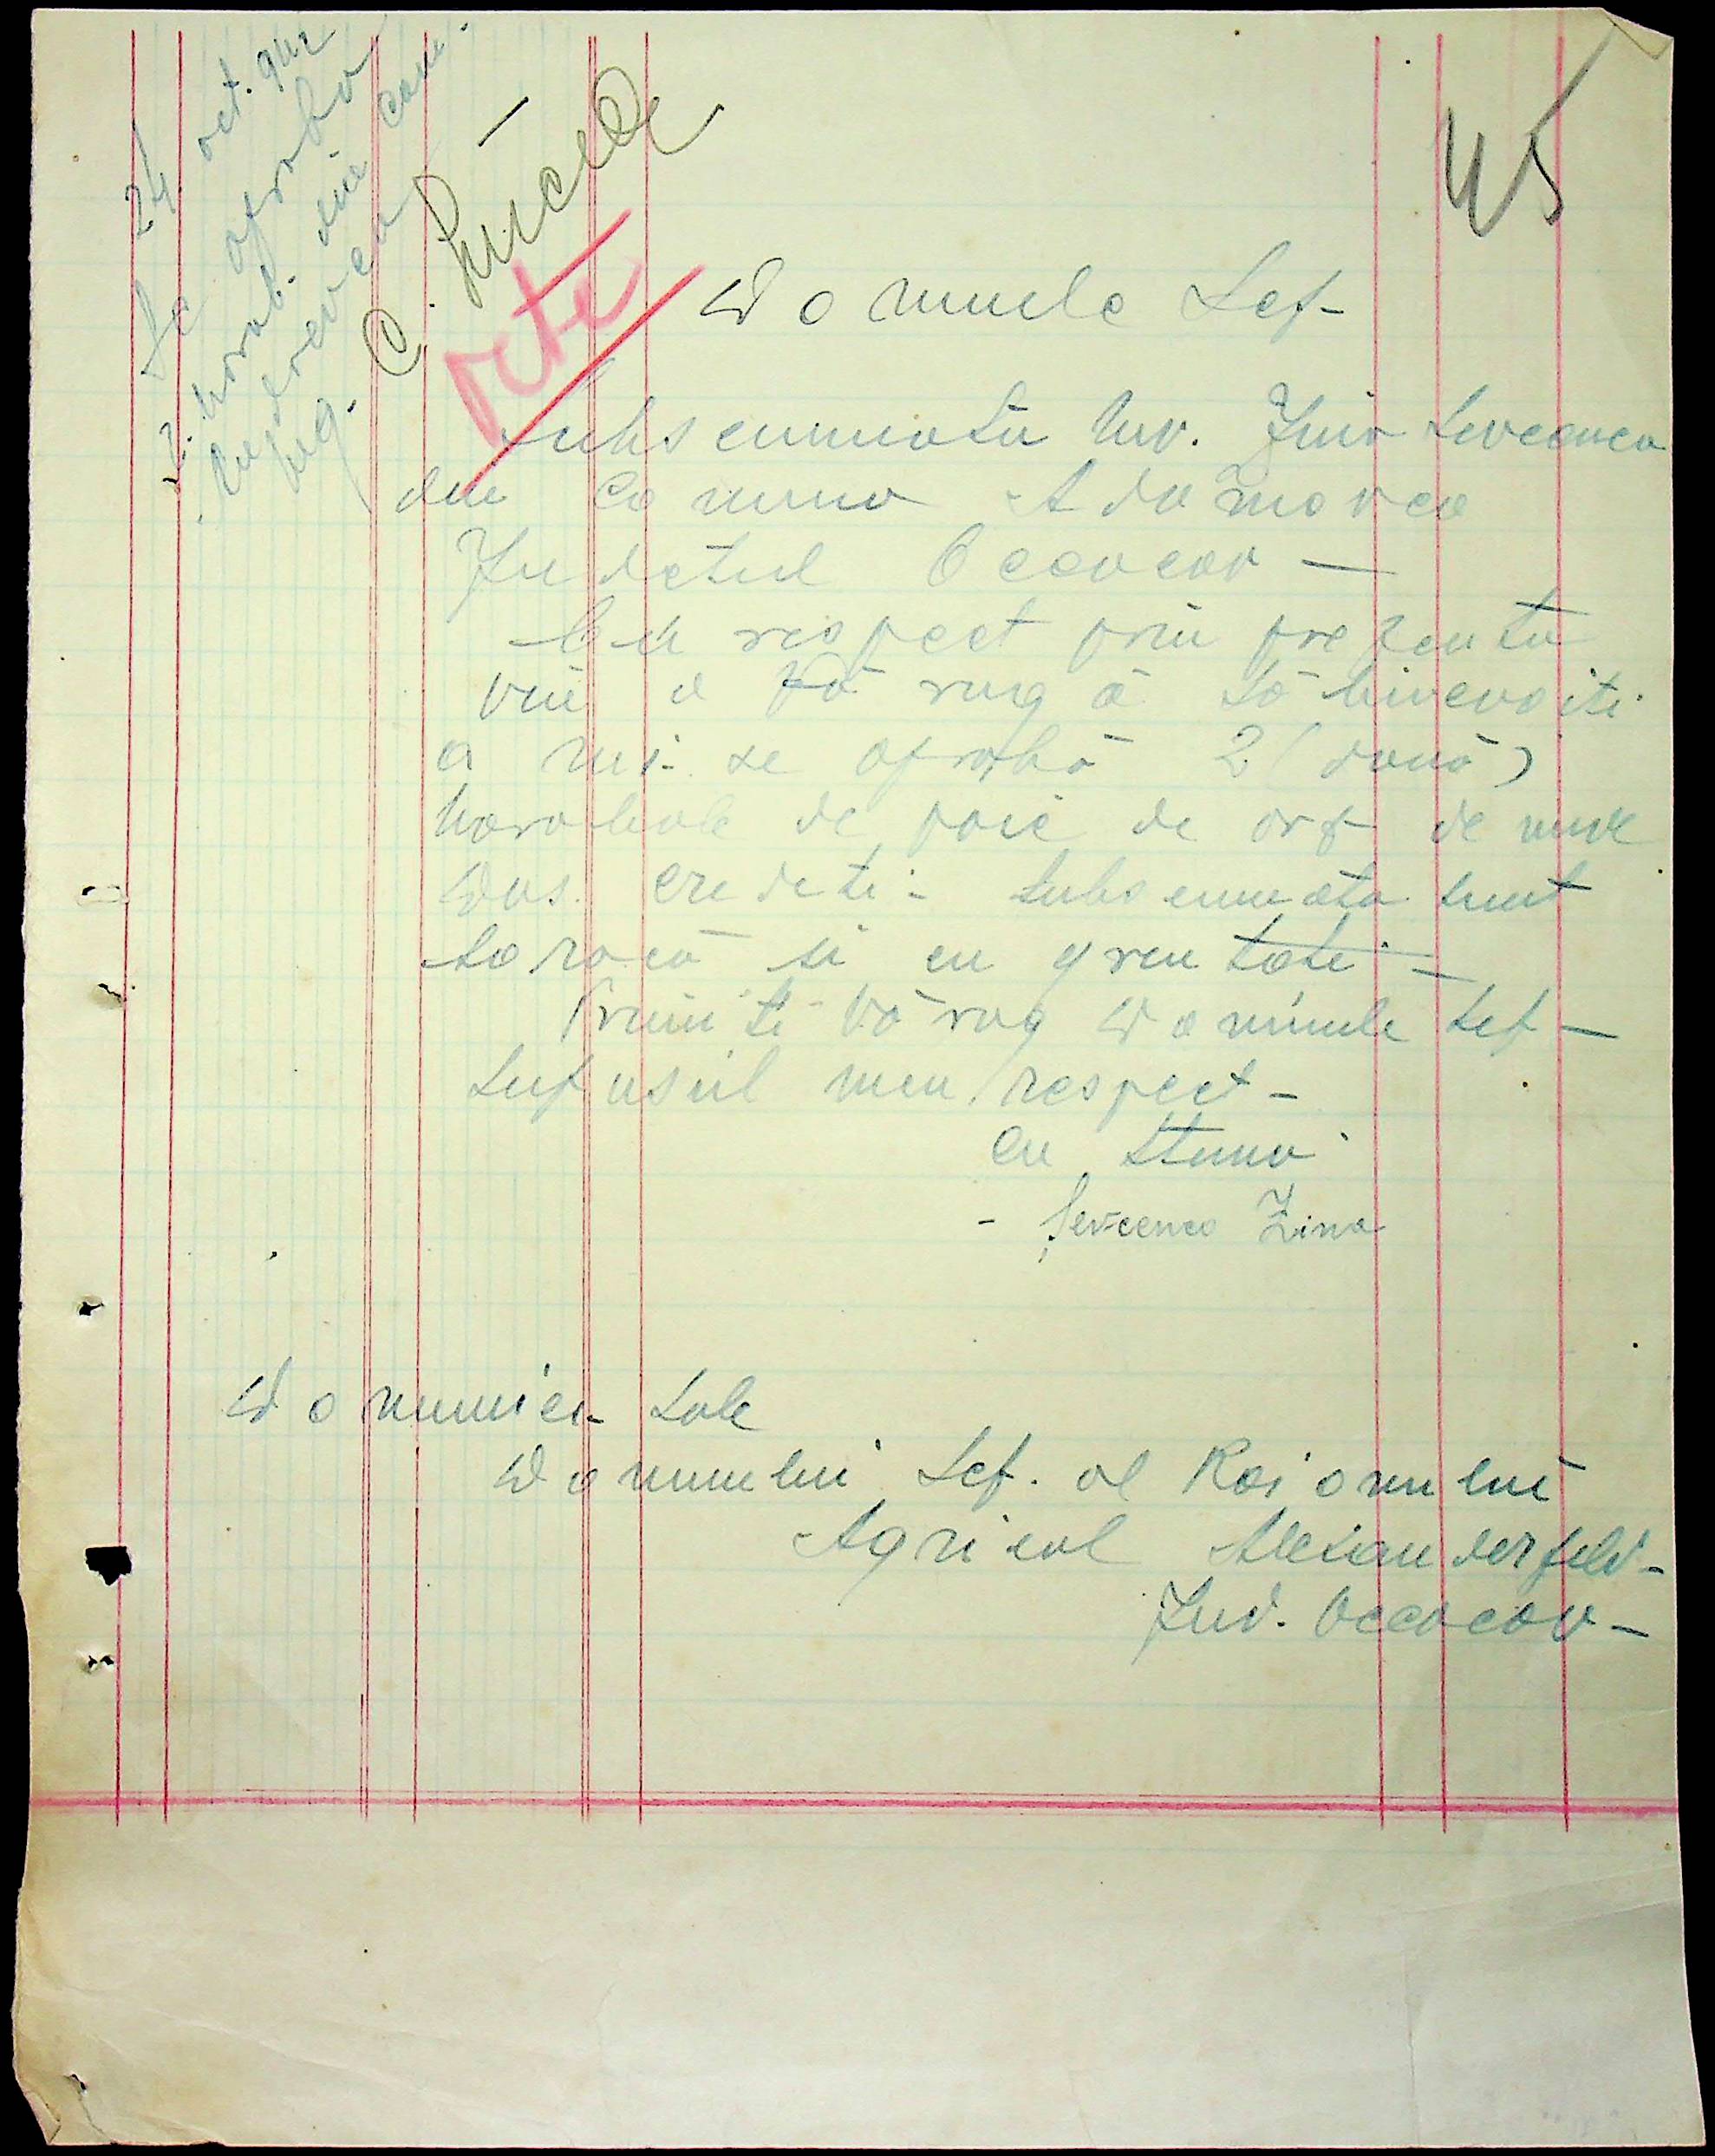 45
24 oct. 942
Se aprobă
2. harab. din com.
C. Suciu
Domnule Sef-
Subsemnata Inv. Zina Sevcenco
din Comuna Adamovca
Judetul Oceacov —
Cu respect prin prezenta
vin a vă rug a să binevoiti
a mi se aprobă 2 (două)
harabale de paie de orz de unde
Dvs. credeti - Subsemnata sunt
săracă si cu greutati -
Primiti vă rog Domnule Sef —
Supusul meu respect -
Cu stima
- Șevcenco Zina
Domniei Sale
Domnului Sef. al Raionului
Agricol Alexanderfeld -
Jud. Oceacov -